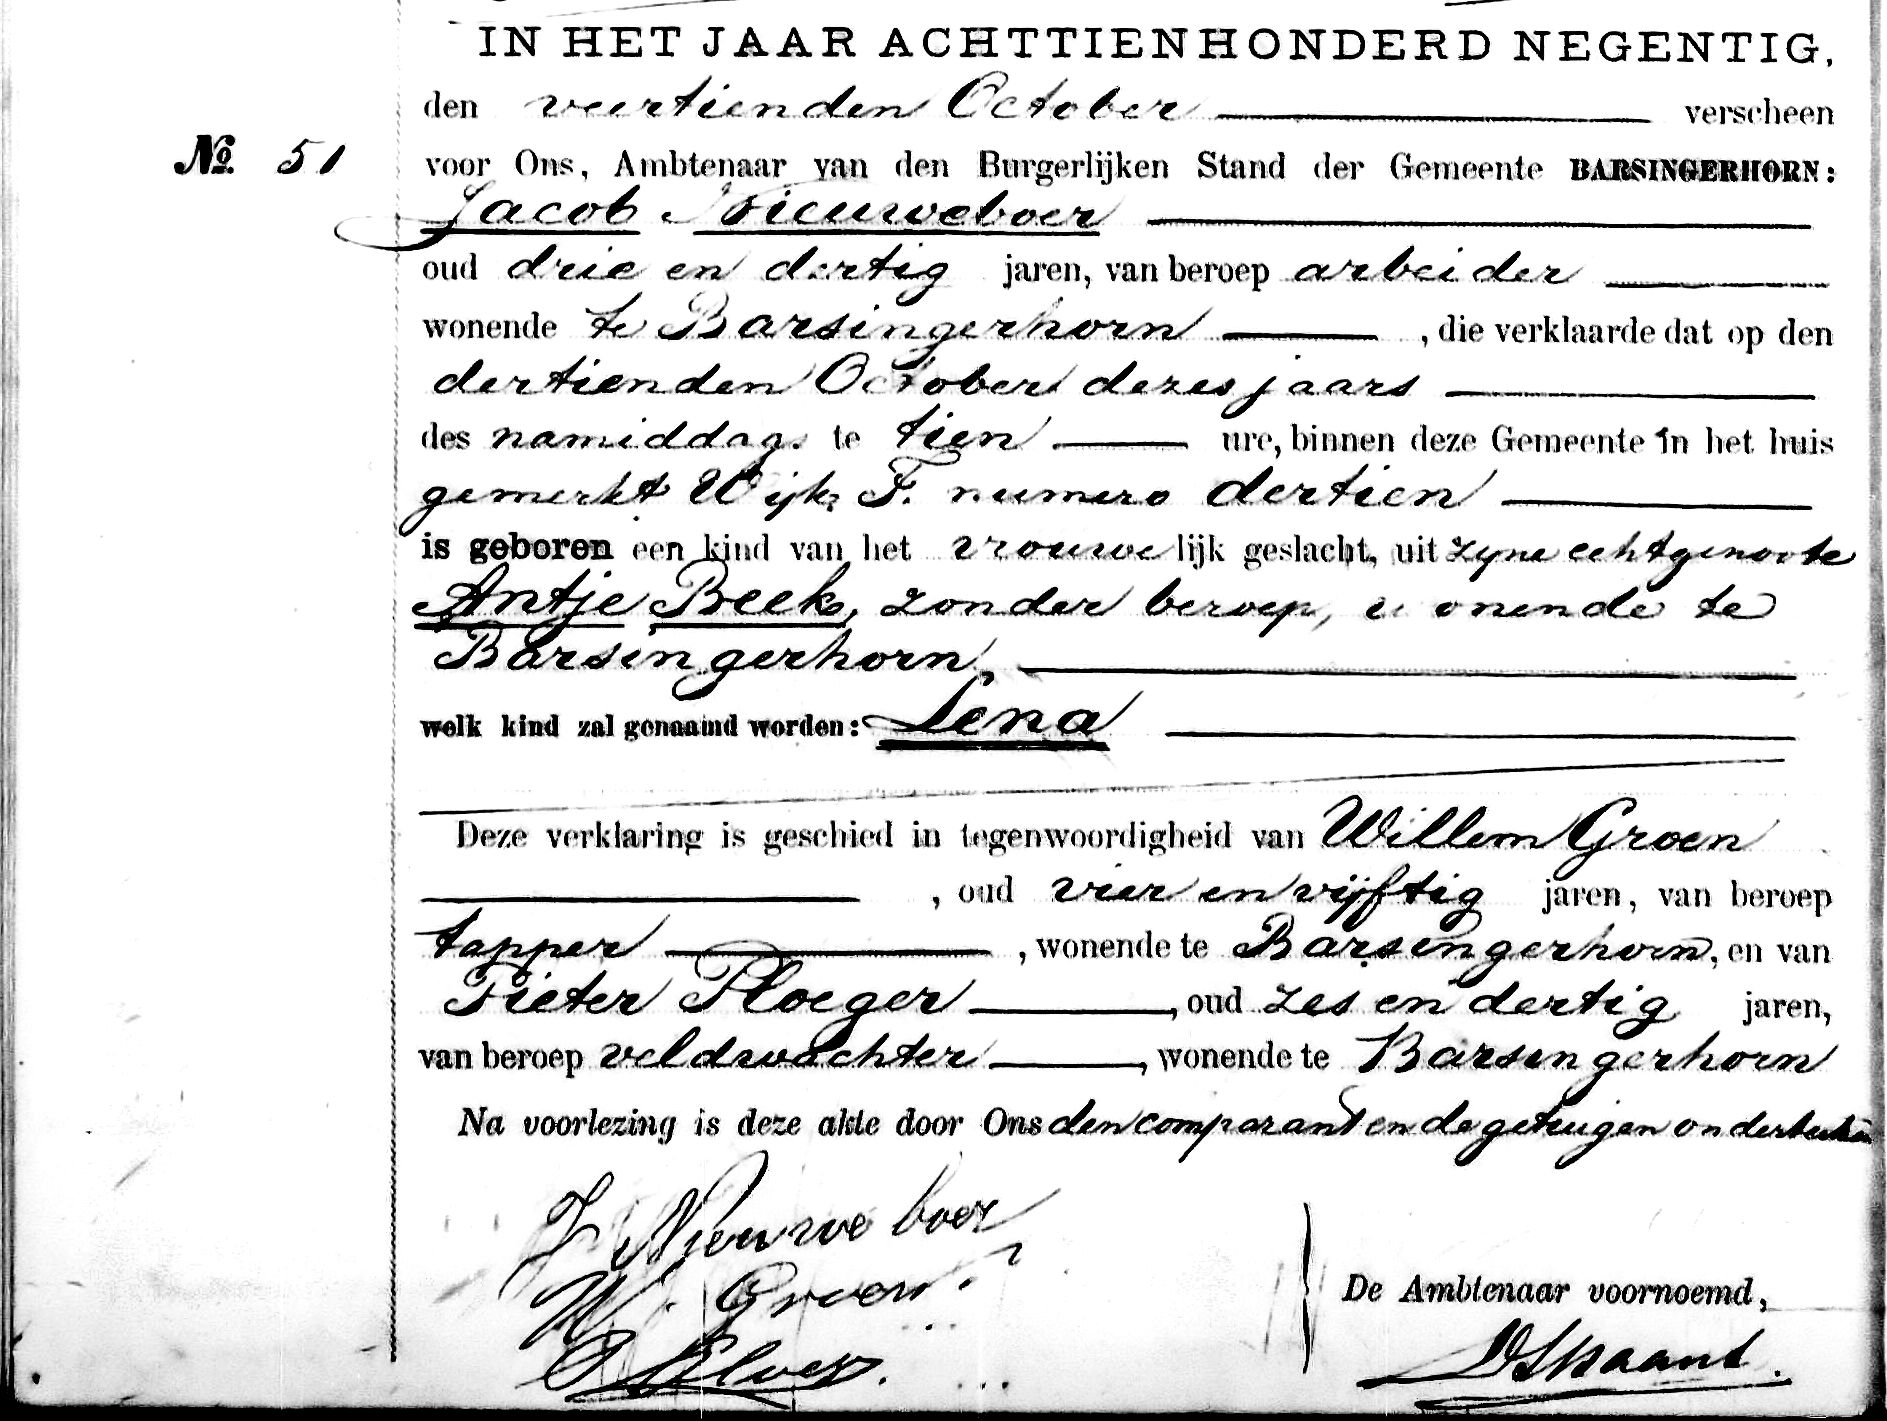 IN HET JAAR ACHTTIENHONDERD NEGENTIG,
den veertienden October verscheen
No. 51
voor Ons, Ambtenaar van den Burgerlijken Stand der Gemeente BARSINGERHORN:
Jacob Nieuweboer
oud drie en dertig jaren, van beroep arbeider
wonende te Barsingerhorn , die verklaarde dat op den
dertienden October dezes jaars
des namiddags te tien ure, binnen deze Gemeente in het huis
gemerkt Wijk F. numero dertien
is geboren een kind van het vrouwelijk geslacht, uit zyne echtgenoote
Antje Beek, zonder beroep, wonende te
Barsingerhorn,
welk kind zal genaamd worden: Lena
Deze verklaring is geschied in tegenwoordigheid van Willem Groen
, oud vier en vijftig jaren, van beroep
tapper , wonende te Barsingerhorn, en van
Pieter Ploeger , oud zes en dertig jaren,
van beroep veldwachter , wonende te Barsingerhorn
Na voorlezing is deze akte door Ons den comparant en de getuigen onderteekend
J Nieuweboer
W. Groen
De Ambtenaar voornoemd,